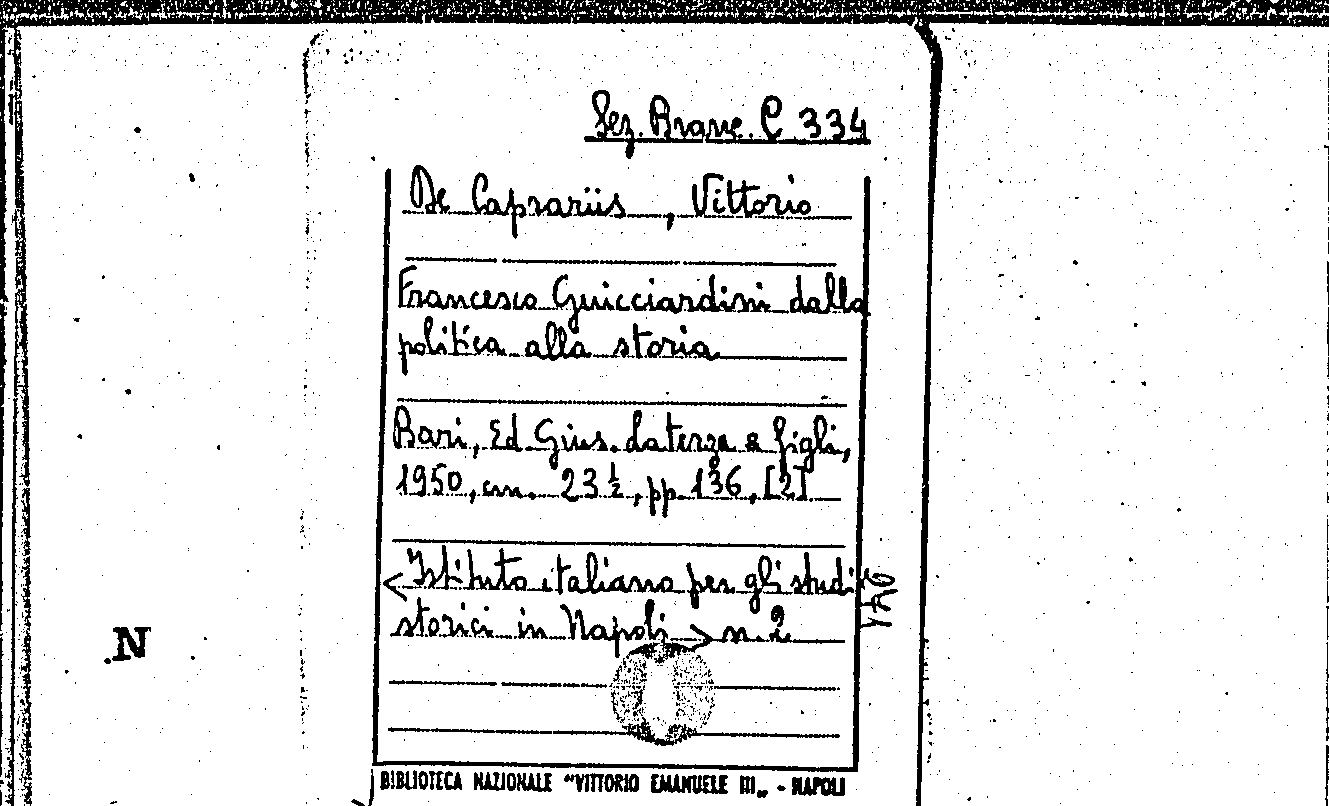 Sez. Branc. C 334
De Caprariis, Vittorio
Francesco Guicciardini dalla
politica alla storia
Bari, Ed. Gius. Laterza e figli,
1950, cm. 23 ½, pp. 136, [2]
<Istituto italiano per gli studi
storici in Napoli> n. 2
N
BIBLIOTECA NAZIONALE "VITTORIO EMANUELE III„ - NAPOLI